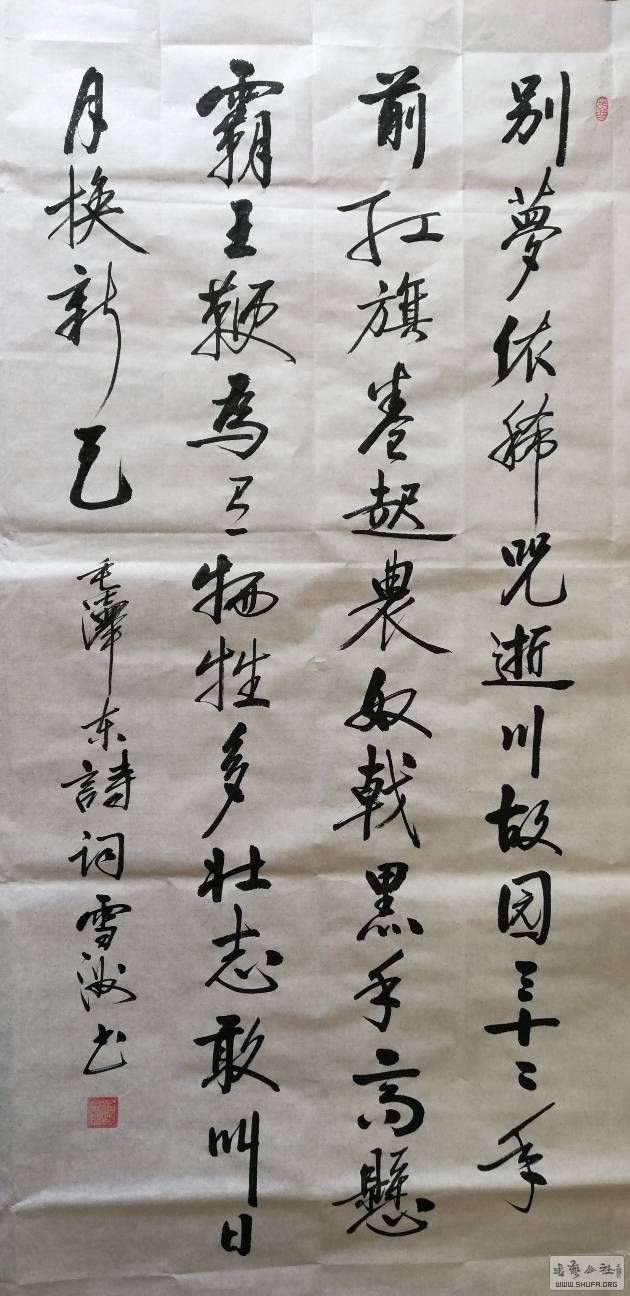 别夢依稀咒逝川故园三十二年
前红旗卷起農奴戟黑手高懸
霸王鞭為有牺牲多壮志敢叫日
月换新天
毛澤东詩词雪书
书艺公社
WWW.SHUFA.ORG